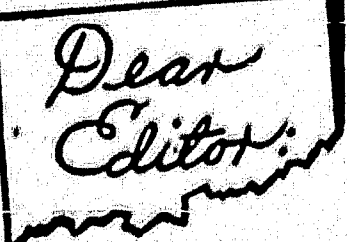 Dear
Editor: